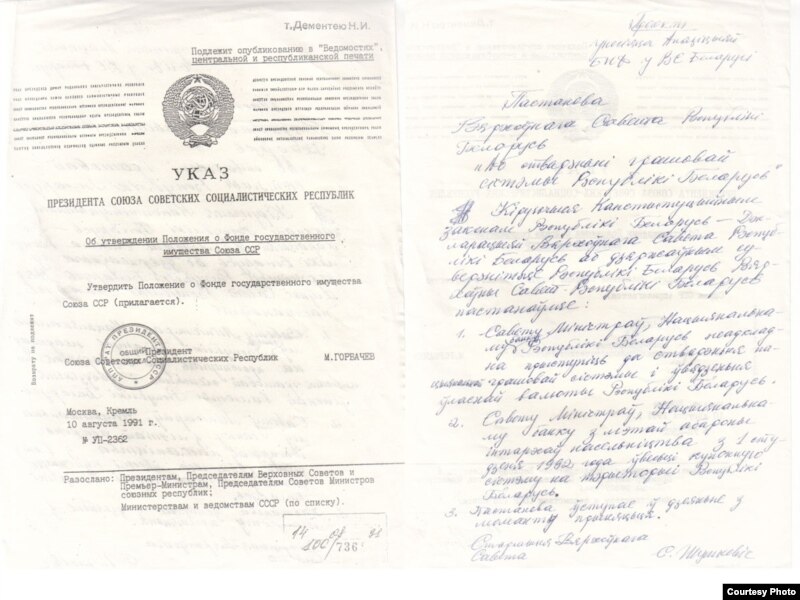 т.Дементею Н.И.
Подлежит опубликованию в "Ведомостях",
центральной и республиканской печати
УКАЗ
ПРЕЗИДЕНТА СОЮЗА СОВЕТСКИХ СОЦИАЛИСТИЧЕСКИХ РЕСПУБЛИК
Об утверждении Положения о Фонде государственного
имущества Союза ССР
Утвердить Положение о Фонде государственного имущества
Союза ССР (прилагается).
АППАРАТ ПРЕЗИДЕНТА СССР
ОБЩИЙ
Президент
Союза Советских Социалистических Республик М.ГОРБАЧЕВ
Возврату не подлежит
Москва, Кремль
10 августа 1991 г.
№ УП-2362
Разослано: Президентам, Председателям Верховных Советов и
Премьер-Министрам, Председателям Советов Министров
союзных республик;
Министерствам и ведомствам СССР (по списку).
14 08 91
100/736
Праект
прапановы Апазіцыяй
БНФ у ВС Беларусі
Пастанова
Вярхоўнага Савета Рэспублікі
Беларусь
"Аб стварэнні грашовай
сістэмы Рэспублікі Беларусь"
Кіруючыся Канстытуцыйным
Законам Рэспублікі Беларусь — Дэк-
ларацыяй Вярхоўнага Савета Рэспуб-
лікі Беларусь аб дзяржаўным су-
верэнітэце Рэспублікі Беларусь Вяр-
хоўны Савет Рэспублікі Беларусь
пастанаўляе:
1. Савету Міністраў, Нацыянальна-
му банку Рэспублікі Беларусь неадклад-
на прыступіць да стварэння на-
цыянальнай грашовай сістэмы і ўвядзення
ўласнай валюты Рэспублікі Беларусь.
2. Савету Міністраў, Нацыянальна-
му банку з мэтай абароны
інтарэсаў насельніцтва з 1 сту-
дзеня 1992 года ўвесці купонную
сістэму на тэрыторыі Рэспублікі
Беларусь.
3. Пастанова ўступае ў дзеянне з
моманту прыняцця.
Старшыня Вярхоўнага
Савета С. Шушкевіч
Courtesy Photo